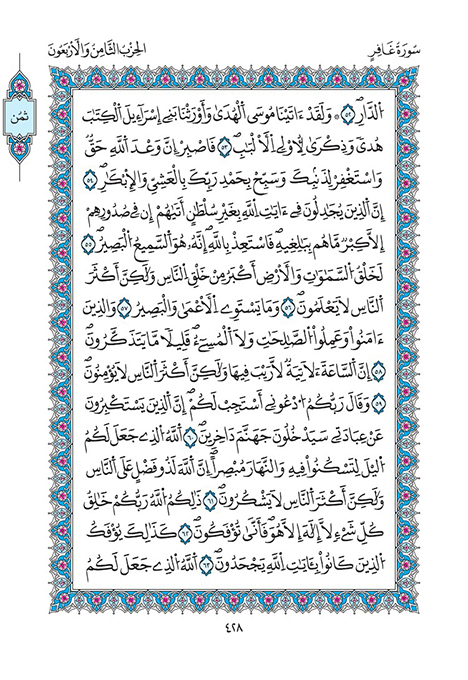 سُورَةُ غَافِرٍ
الحِزْبُ الثَّامِنُ وَالْأَرْبَعُونَ
ثُمُن
اُ۬لدّ۪ارِۖ ٥٢ ۞ وَلَقَدَ اٰتَيْنَا مُوسَي اَ۬لْهُد۪ىٰ وَأَوْرَثْنَا بَنِےٓ إِسْرَآءِيلَ اَ۬لْكِتَٰبَ
هُديٗ وَذِكْر۪ىٰ لِأُوْلِے اِ۬لَالْبَٰبِۖ ٥٣ فَاصْبِرِ اِنَّ وَعْدَ اَ۬للَّهِ حَقّٞۖ
وَاسْتَغْفِرْ لِذَنۢبِكَ وَسَبِّحْ بِحَمْدِ رَبِّكَ بِالْعَشِيِّ وَالِابْكٰ۪رِۖ ٥٤
إِنَّ اَ۬لذِينَ يُجَٰدِلُونَ فِےٓ ءَايَٰتِ اِ۬للَّهِ بِغَيْرِ سُلْطَٰنٍ اَت۪يٰهُمُۥٓ إِن فِے صُدُورِهِمُۥٓ
إِلَّا كِبْرٞ مَّا هُم بِبَٰلِغِيهِۖ فَاسْتَعِذْ بِاللَّهِۖ إِنَّهُۥ هُوَ اَ۬لسَّمِيعُ اُ۬لْبَصِيرُۖ ٥٥
لَخَلْقُ اُ۬لسَّمَٰوَٰتِ وَالَارْضِ أَكْبَرُ مِنْ خَلْقِ اِ۬لنَّاسِ وَلَٰكِنَّ أَكْثَرَ
اَ۬لنَّاسِ لَا يَعْلَمُونَۖ ٥٦ وَمَا يَسْتَوِے اِ۬لَاعْم۪ىٰ وَالْبَصِيرُۖ ٥٧ وَالذِينَ
ءَامَنُواْ وَعَمِلُواْ اُ۬لصَّٰلِحَٰتِ وَلَا اَ۬لْمُسِےٓءُۖ قَلِيلاٗ مَّا يَتَذَكَّرُونَۖ
٥٨ إِنَّ اَ۬لسَّاعَةَ ءَلَاتِيَةٞ لَّا رَيْبَ فِيهَا وَلَٰكِنَّ أَكْثَرَ اَ۬لنَّاسِ لَا يُومِنُونَۖ
٥٩ وَقَالَ رَبُّكُمُ اُ۟دْعُونِےٓ أَسْتَجِبْ لَكُمُۥٓۖ إِنَّ اَ۬لذِينَ يَسْتَكْبِرُونَ
عَنْ عِبَادَتِے سَيَدْخُلُونَ جَهَنَّمَ دَاخِرِينَۖ ٦٠ اَ۬للَّهُ اُ۬لذِے جَعَلَ لَكُمُ
اُ۬ليْلَ لِتَسْكُنُواْ فِيهِ وَالنَّهَارَ مُبْصِراًۖ اِنَّ اَ۬للَّهَ لَذُو فَضْلٍ عَلَي اَ۬لنَّاسِ
وَلَٰكِنَّ أَكْثَرَ اَ۬لنَّاسِ لَا يَشْكُرُونَۖ ٦١ ذَٰلِكُمُ اُ۬للَّهُ رَبُّكُمْ خَٰلِقُ
كُلِّ شَےْءٖ لَّآ إِلَٰهَ إِلَّا هُوَۖ فَأَنّ۪ىٰ تُوفَكُونَۖ ٦٢ كَذَٰلِكَ يُوفَكُ
اُ۬لذِينَ كَانُواْ بِـَٔايَٰتِ اِ۬للَّهِ يَجْحَدُونَۖ ٦٣ اَ۬للَّهُ اُ۬لذِے جَعَلَ لَكُمُ
٤٢٨